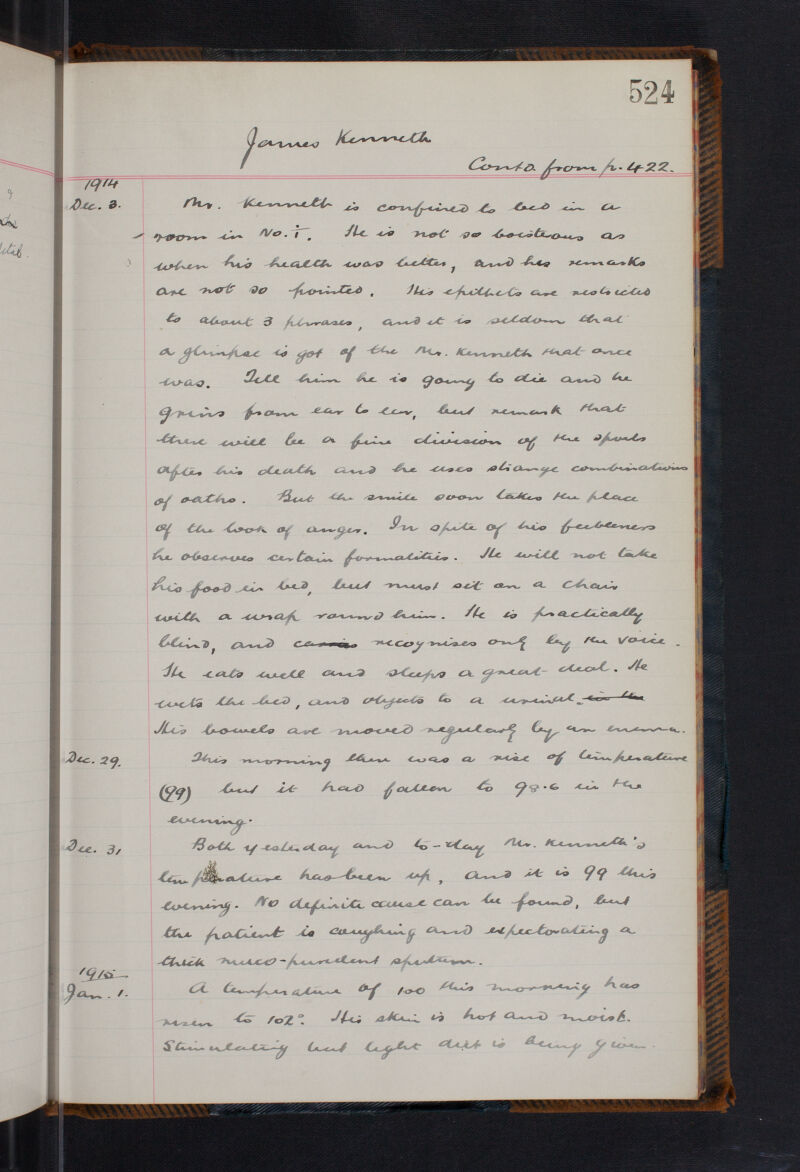 524
James Kenneth
Contd from p. 422.
1914
Dec. 3. Mr. Kenneth is confined to bed in a
room in No. 1. He is not so boisterous as
when his health was better, and his remarks
are not so pointed. His epithets are restricted
to about 3 phrases, and it is seldom that
a glimpse is got of the Mr. Kenneth that once
was. Tell him he is going to die and he
grins from ear to ear, but remark that
there will be a fine division of the spoils
after his death and he uses strange combinations
of oaths. But the smile soon takes the place
of the look of anger. In spite of his feebleness
he observes certain formalities. He will not take
his food in bed, but must sit on a chair
with a wrap round him. He is practically
blind, and recognises only by the voice.
He eats well and sleeps a great deal. He
wets the bed, and objects to a urinal. in the
His bowels are moved regularly by an enema.
Dec. 29. This morning there was a rise of temperature
(99) but it had fallen to 98.6 in the
evening.
Dec. 31 Both yesterday and to-day Mr. Kenneth's
temperature has been up, and it is 99 this
evening. No definite cause can be found, but
the patient is coughing and expectorating a
thick muco-purulent sputum.
1915
Jan. 1. A temperature of 100 this morning has
risen to 102°. His skin is hot and moist.
Stimulating but light diet is being given.